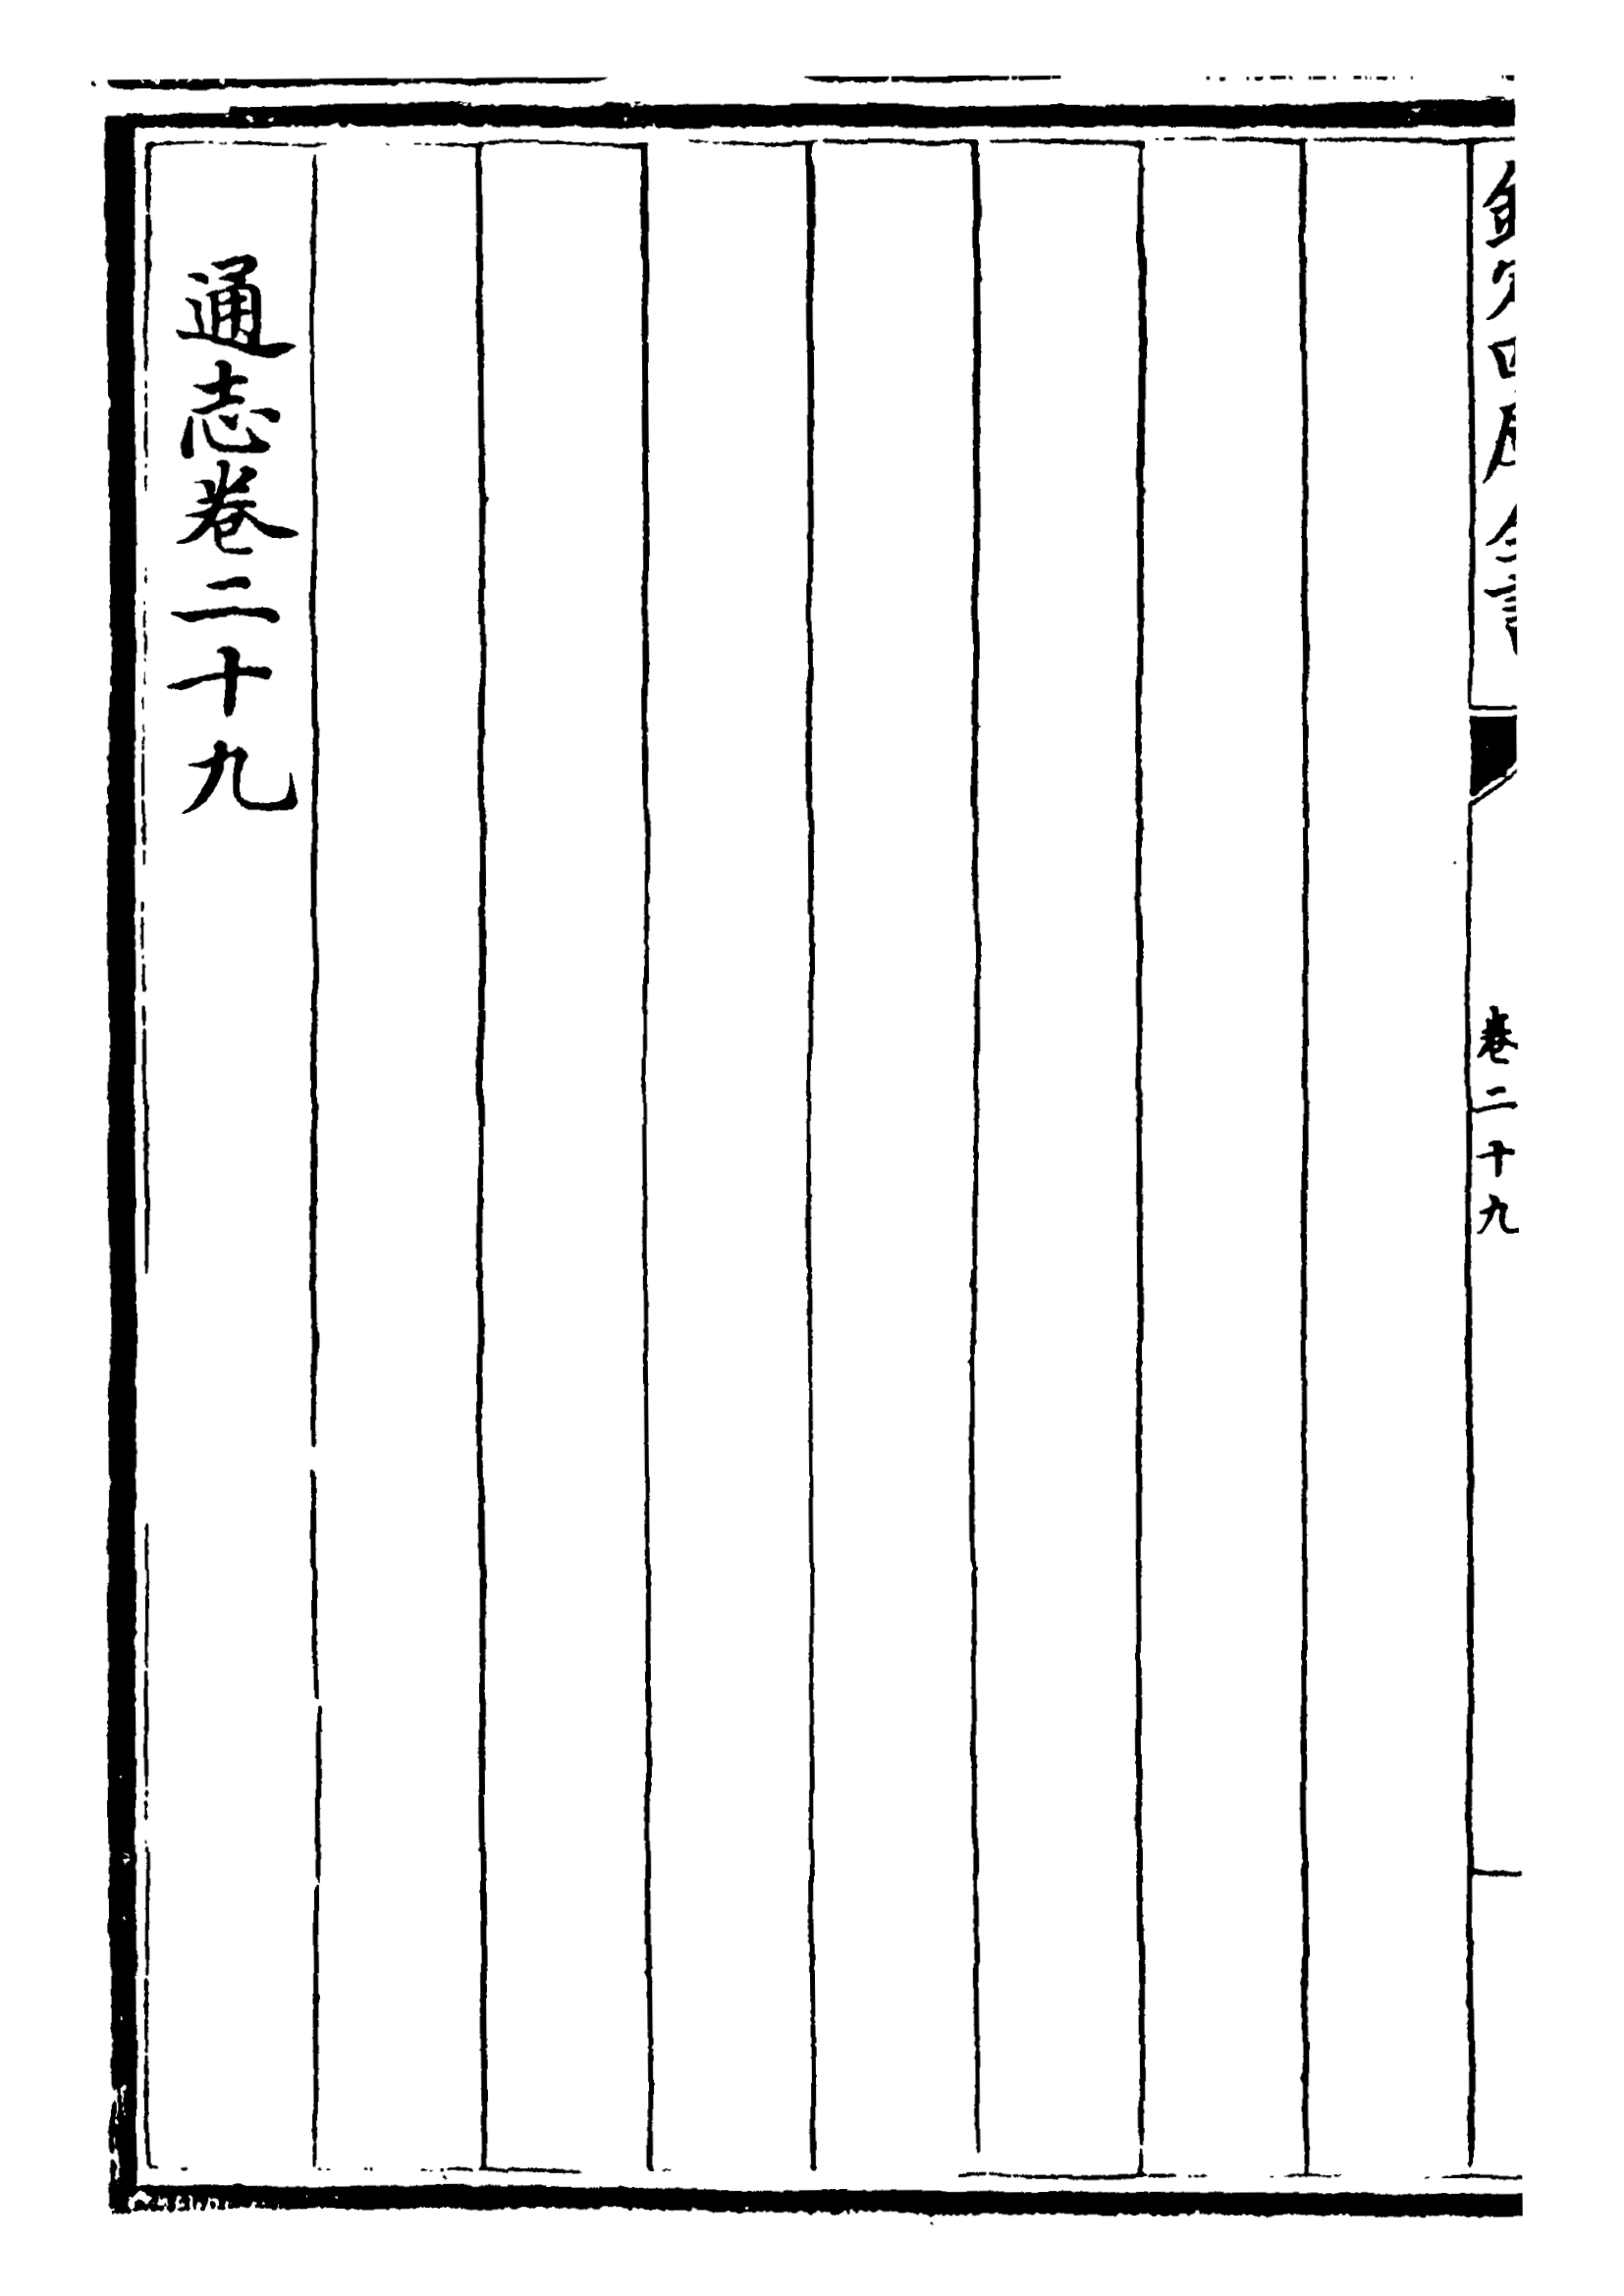 欽定四庫全書
卷二十九
通志卷二十九